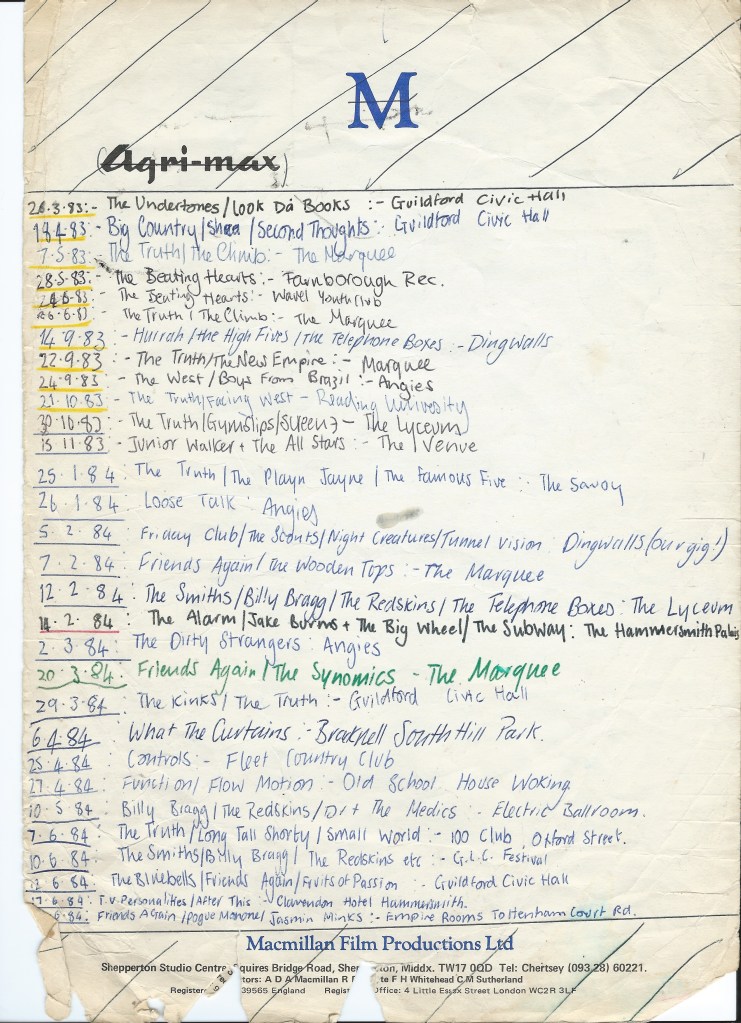 M
(Agri-max)
26.3.83:- The Undertones/Look Da Books :- Guildford Civic Hall
18.4.83:- Big Country/Shea/Second Thoughts:- Guildford Civic Hall
7.5.83:- The Truth/The Climb:- The Marquee
28.5.83:- The Beating Hearts:- Farnborough Rec.
The Beating Hearts:- Wavel Youth Club
The Truth/The Climb:- The Marquee
14.9.83:- Hurrah/The High Fives/The Telephone Boxes:- Dingwalls
22.9.83:- The Truth/The New Empire:- Marquee
24.9.83:- The West/Boys From Brazil:- Angies
21.10.83:- The Truth/Facing West - Reading University
30.10.83:- The Truth/Gymslips/Screen 3- The Lyceum
15.11.83:- Junior Walker + The All Stars:- The Venue
25.1.84: The Truth/The Playn Jayne/The Famous Five:: The Savoy
26.1.84: Loose Talk: Angies
5.2.84: Friday Club/The Scouts/Night Creatures/Tunnel Vision: Dingwalls (our gig!)
7.2.84: Friends Again/The Wooden Tops:- The Marquee
12.2.84: The Smiths/Billy Bragg/The Redskins/The Telephone Boxes: The Lyceum
14.2.84: The Alarm/Jake Burns + The Big Wheel/The Subway: The Hammersmith Palais
2.3.84: The Dirty Strangers: Angies
20.3.84: Friends Again/The Synomics - The Marquee
29.3.84: The Kinks/The Truth:- Guildford Civic Hall
6.4.84: What The Curtains:- Bracknell South Hill Park.
25.4.84: Controls:- Fleet Country Club
27.4.84: Function/Flow Motion:- Old School House Woking
10.5.84: Billy Bragg/The Redskins/Dr + The Medics:- Electric Ballroom.
7.6.84: The Truth/Long Tall Shorty/Small World:- 100 Club, Oxford Street.
10.6.84: The Smiths/Billy Bragg/The Redskins etc:- G.L.C. Festival
6.84: The Bluebells/Friends Again/Fruits of Passion:- Guildford Civic Hall
17.6.84: T.V. Personalities/After This:- Clarendon Hotel Hammersmith.
6.84: Friends Again/Pogue Mohone/Jasmin Minks:- Empire Rooms Tottenham Court Rd.
Macmillan Film Productions Ltd
Shepperton Studio Centre quires Bridge Road, Shep ton, Middx. TW17 0QD Tel: Chertsey (093 28) 60221.
tors: A D A Macmillan R F te F H Whitehead C M Sutherland
Register 39565 England Regis Office: 4 Little Essex Street London WC2R 3LF